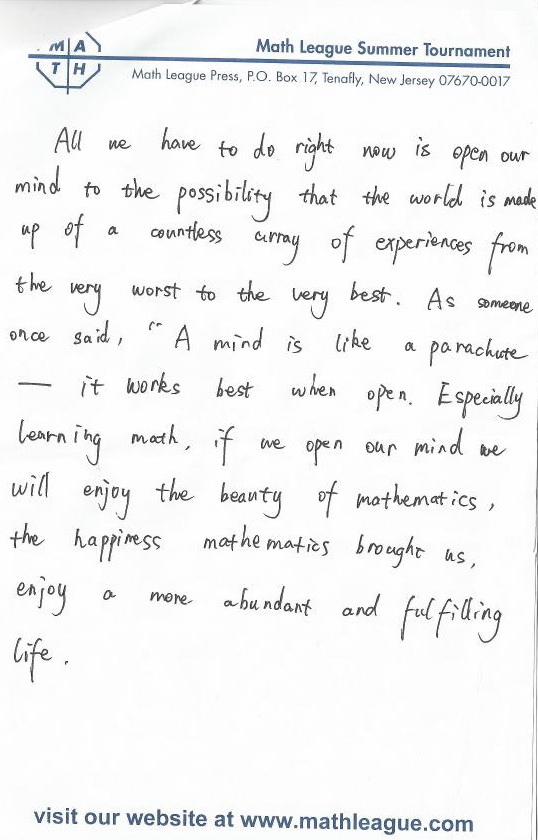 MA
TH
Math League Summer Tournament
Math League Press, P.O. Box 17, Tenafly, New Jersey 07670-0017
All we have to do right now is open our
mind to the possibility that the world is made
up of a countless array of experiences from
the very worst to the very best. As someone
once said, “A mind is like a parachute
— it works best when open. Especially
learning math, if we open our mind we
will enjoy the beauty of mathematics,
the happiness mathematics brought us,
enjoy a more abundant and fulfilling
life.
visit our website at www.mathleague.com